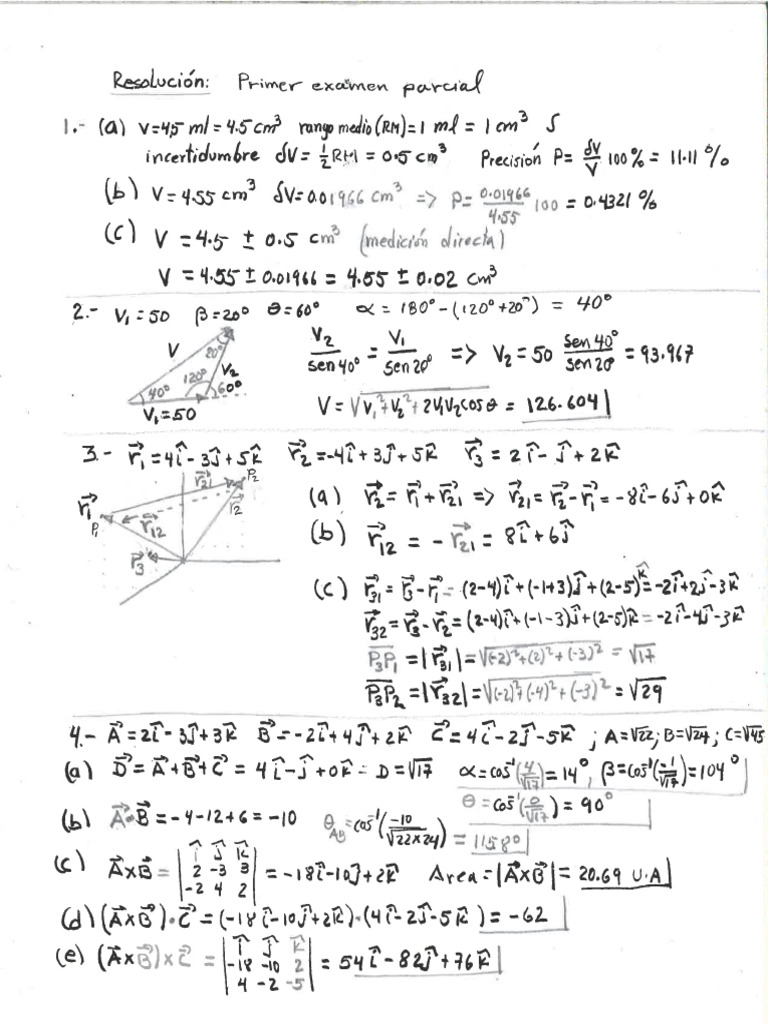 Resolución: Primer examen parcial
1.- (a) V=4,5 ml = 4.5 cm³ rango medio (RM)=1 ml = 1 cm³ S
incertidumbre δV = ½RM = 0.5 cm³ Precisión P= δV/V 100% = 11.11 %
(b) V = 4.55 cm³ δV=0.01966 cm³ => P= 0.01966/4.55 100 = 0.4321 %
(c) V = 4.5 ± 0.5 cm³ (medición directa)
V = 4.55 ± 0.01966 = 4.55 ± 0.02 cm³
2.- V₁=50 β=20° θ=60° α = 180° - (120°+20°) = 40°
V 20° 120° V₂ 40° 60° V₁=50
V₂/sen 40° = V₁/sen 20° => V₂ = 50 sen 40°/sen 20° = 93.967
V = √V₁²+V₂²+2V₁V₂cosθ = 126.604
3.- r⃗₁=4î-3ĵ+5k̂ r⃗₂=-4î+3ĵ+5k̂ r⃗₃=2î-ĵ+2k̂
r⃗₁ P₁ r⃗₂₁ P₂ r⃗₂ r⃗₁₂ r⃗₃
(a) r⃗₂=r⃗₁+r⃗₂₁ => r⃗₂₁=r⃗₂-r⃗₁=-8î-6ĵ+0k̂
(b) r⃗₁₂ = -r⃗₂₁ = 8î+6ĵ
(c) r⃗₃₁=r⃗₃-r⃗₁=(2-4)î+(-1+3)ĵ+(2-5)k̂=-2î+2ĵ-3k̂
r⃗₃₂=r⃗₃-r⃗₂=(2-4)î+(-1-3)ĵ+(2-5)k̂=-2î-4ĵ-3k̂
P₃P₁=|r⃗₃₁|=√(-2)²+(2)²+(-3)² = √17
P₃P₂=|r⃗₃₂|=√(-2)²+(-4)²+(-3)² = √29
4.- A⃗=2î-3ĵ+3k̂ B⃗=-2î+4ĵ+2k̂ C⃗=4î-2ĵ-5k̂ ; A=√22; B=√24; C=√45
(a) D⃗ = A⃗+B⃗+C⃗ = 4î-ĵ+0k̂ = D=√17 α=cos⁻¹(4/√17)=14°, β=cos⁻¹(-1/√17)=104°
θ=cos⁻¹(0/√17)=90°
(b) A⃗•B⃗=-4-12+6=-10 θ_AB=cos⁻¹(-10/√22×24) = 115.8°
(c) A⃗×B⃗ = |î ĵ k̂; 2 -3 3; -2 4 2| = -18î-10ĵ+2k̂ Area=|A⃗×B⃗|=20.69 U.A
(d) (A⃗×B⃗)•C⃗=(-18î-10ĵ+2k̂)•(4î-2ĵ-5k̂)=-62
(e) (A⃗×B⃗)×C⃗ = |î ĵ k̂; -18 -10 2; 4 -2 -5| = 54î-82ĵ+76k̂